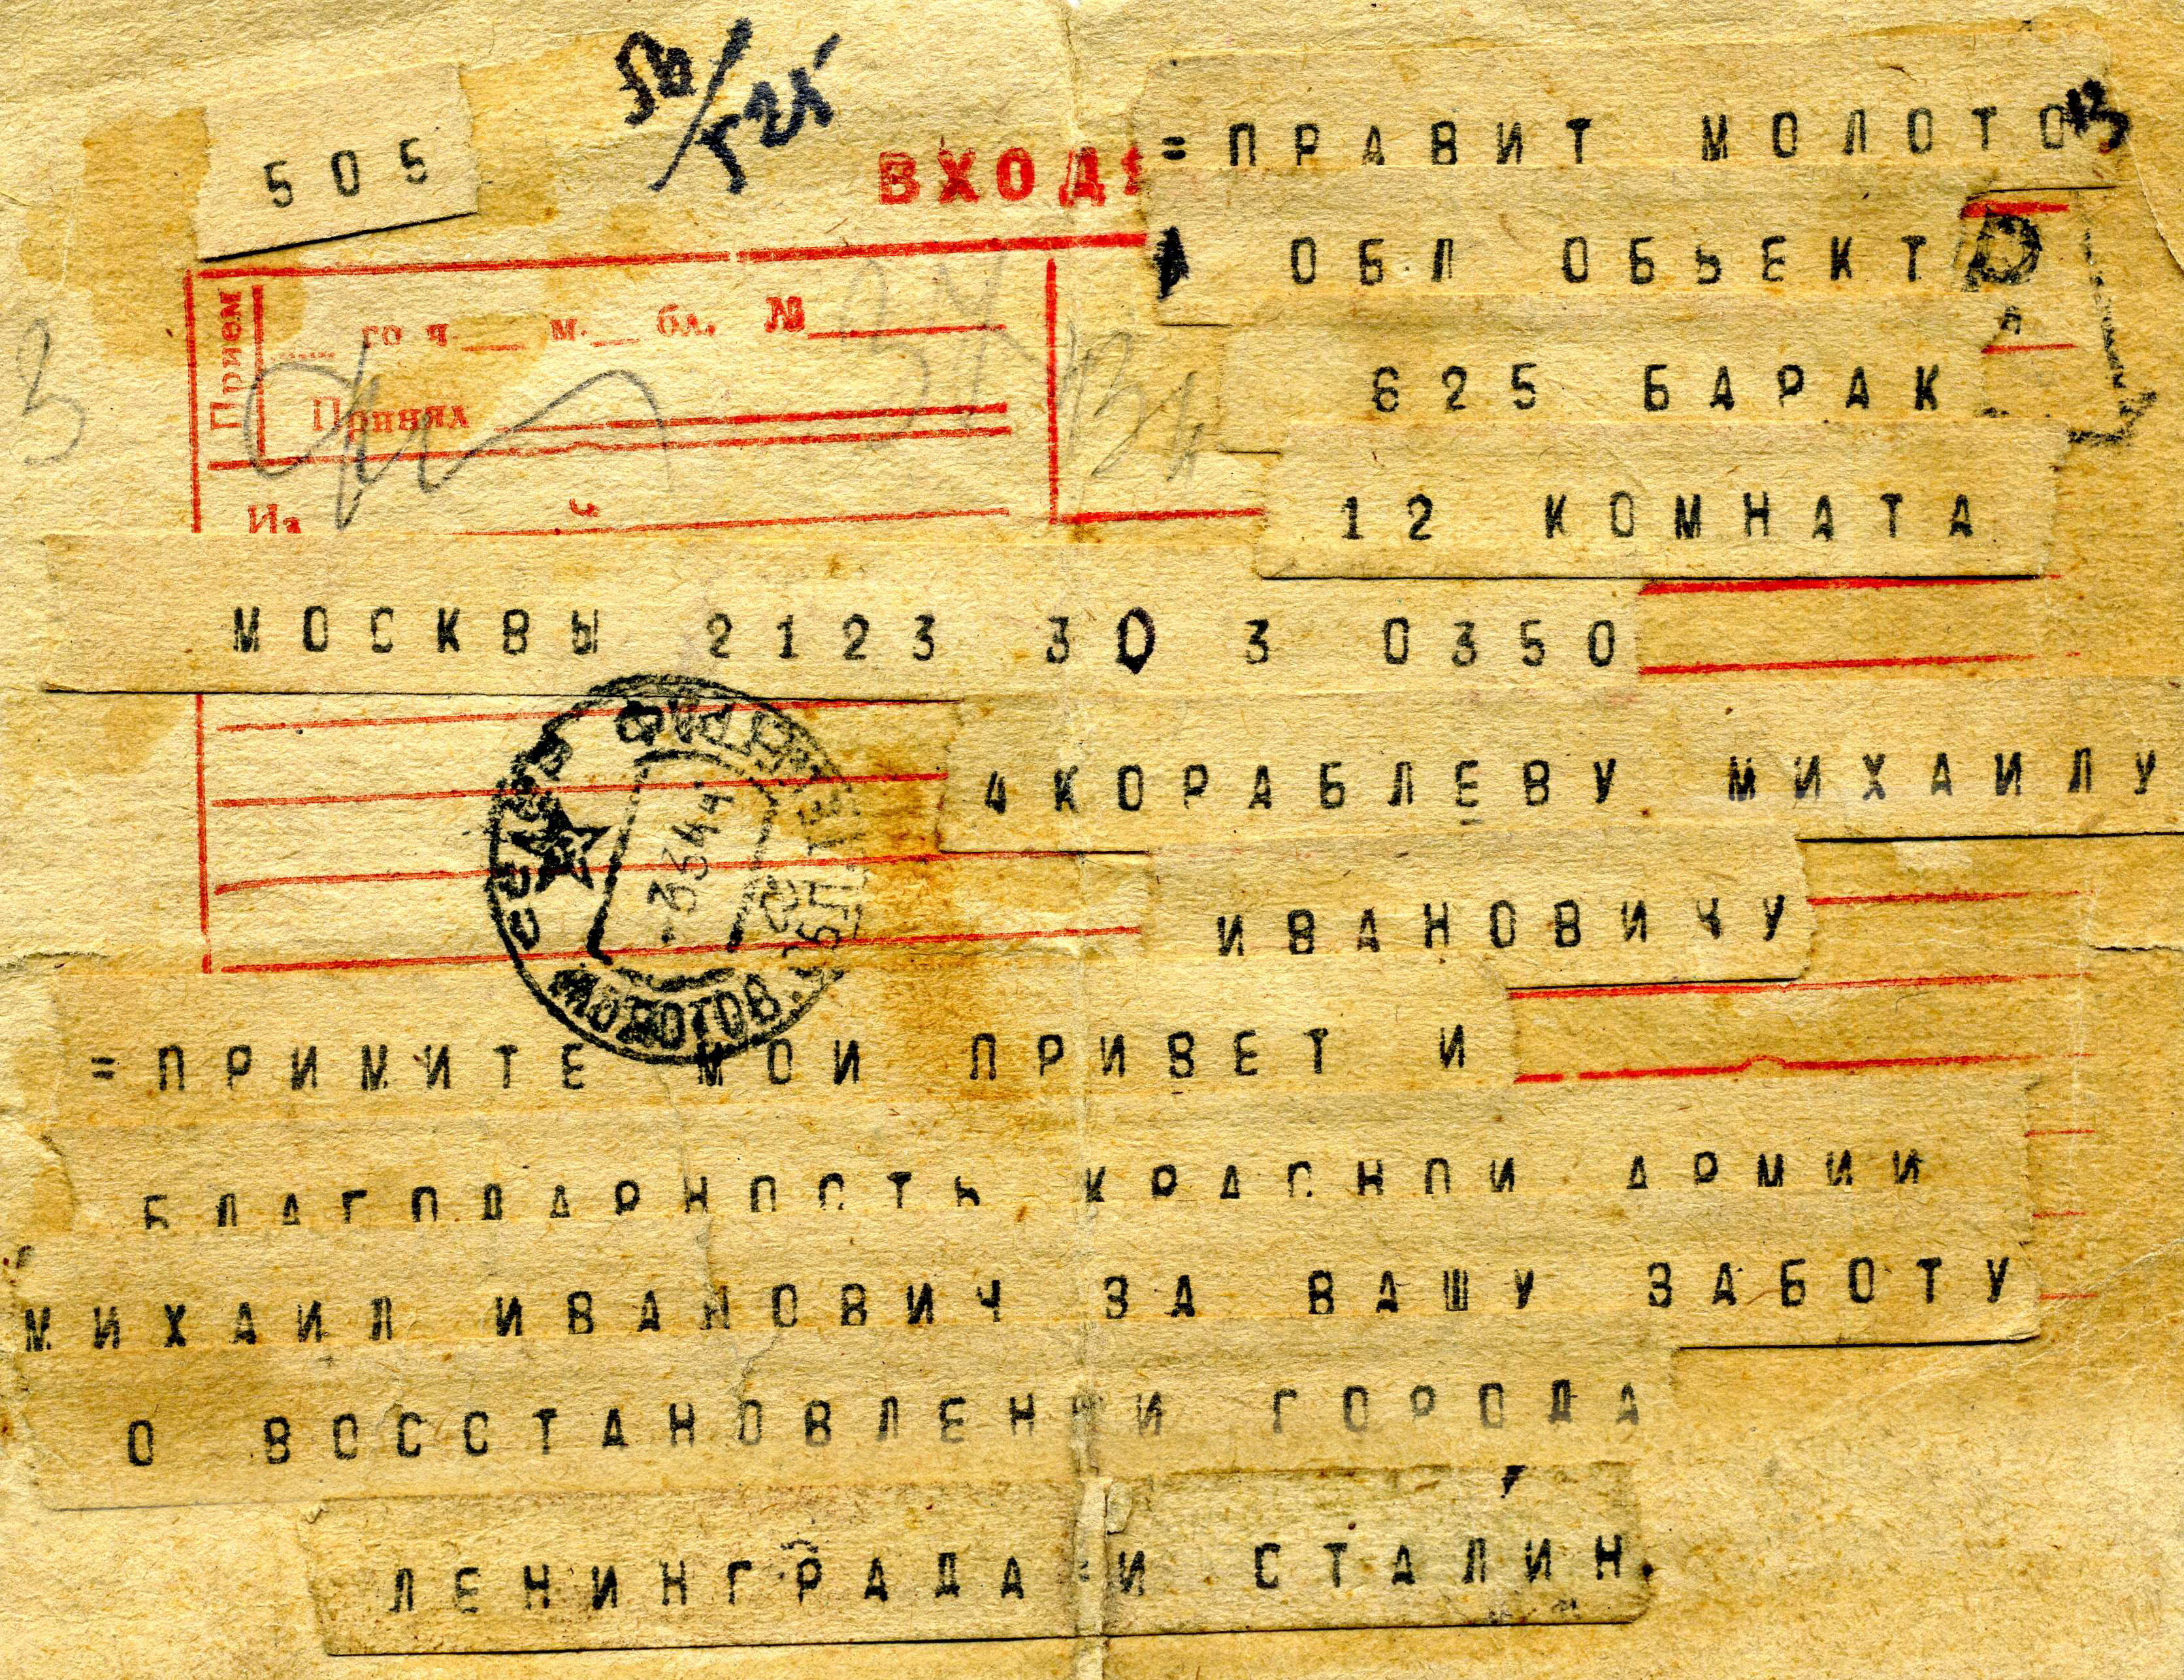 505
ВХОДЯ
=ПРАВИТ МОЛОТОВ
ОБЛ ОБЬЕКТ
625 БАРАК
12 КОМНАТА
Прием
го ч. м. бл. №
Принял
Из
МОСКВЫ 2123 30 3 0350
4 КОРАБЛЕВУ МИХАИЛУ
ИВАНОВИЧУ
-3 3 44
МОЛОТОВ. ОБЛ.
=ПРИМИТЕ МОИ ПРИВЕТ И
БЛАГОДАРНОСТЬ КРАСНОИ АРМИИ
МИХАИЛ ИВАНОВИЧ ЗА ВАШУ ЗАБОТУ
О ВОССТАНОВЛЕНИИ ГОРОДА
ЛЕНИНГРАДА = И СТАЛИН.